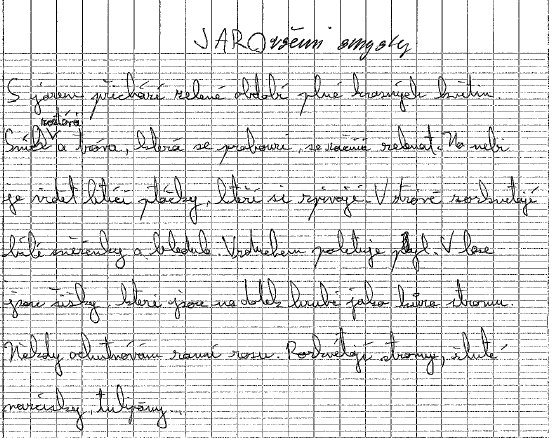 JARO všemi smysly
S jarem přichází zelené období plné krásných květin.
roztává
Sníh a tráva, která se probouzí, se začíná zelenat. Na nebi
je vidět letící ptáčky, kteří si zpívají. V trávě rozkvetají
bílé sněženky a bledule. Vzduchem poletuje pyl. V lese
jsou šišky, které jsou na dotek hrubé jako kůra stromu.
Někdy ochutnávám ranní rosu. Rozkvétají stromy, žluté
narcisky, tulipány...